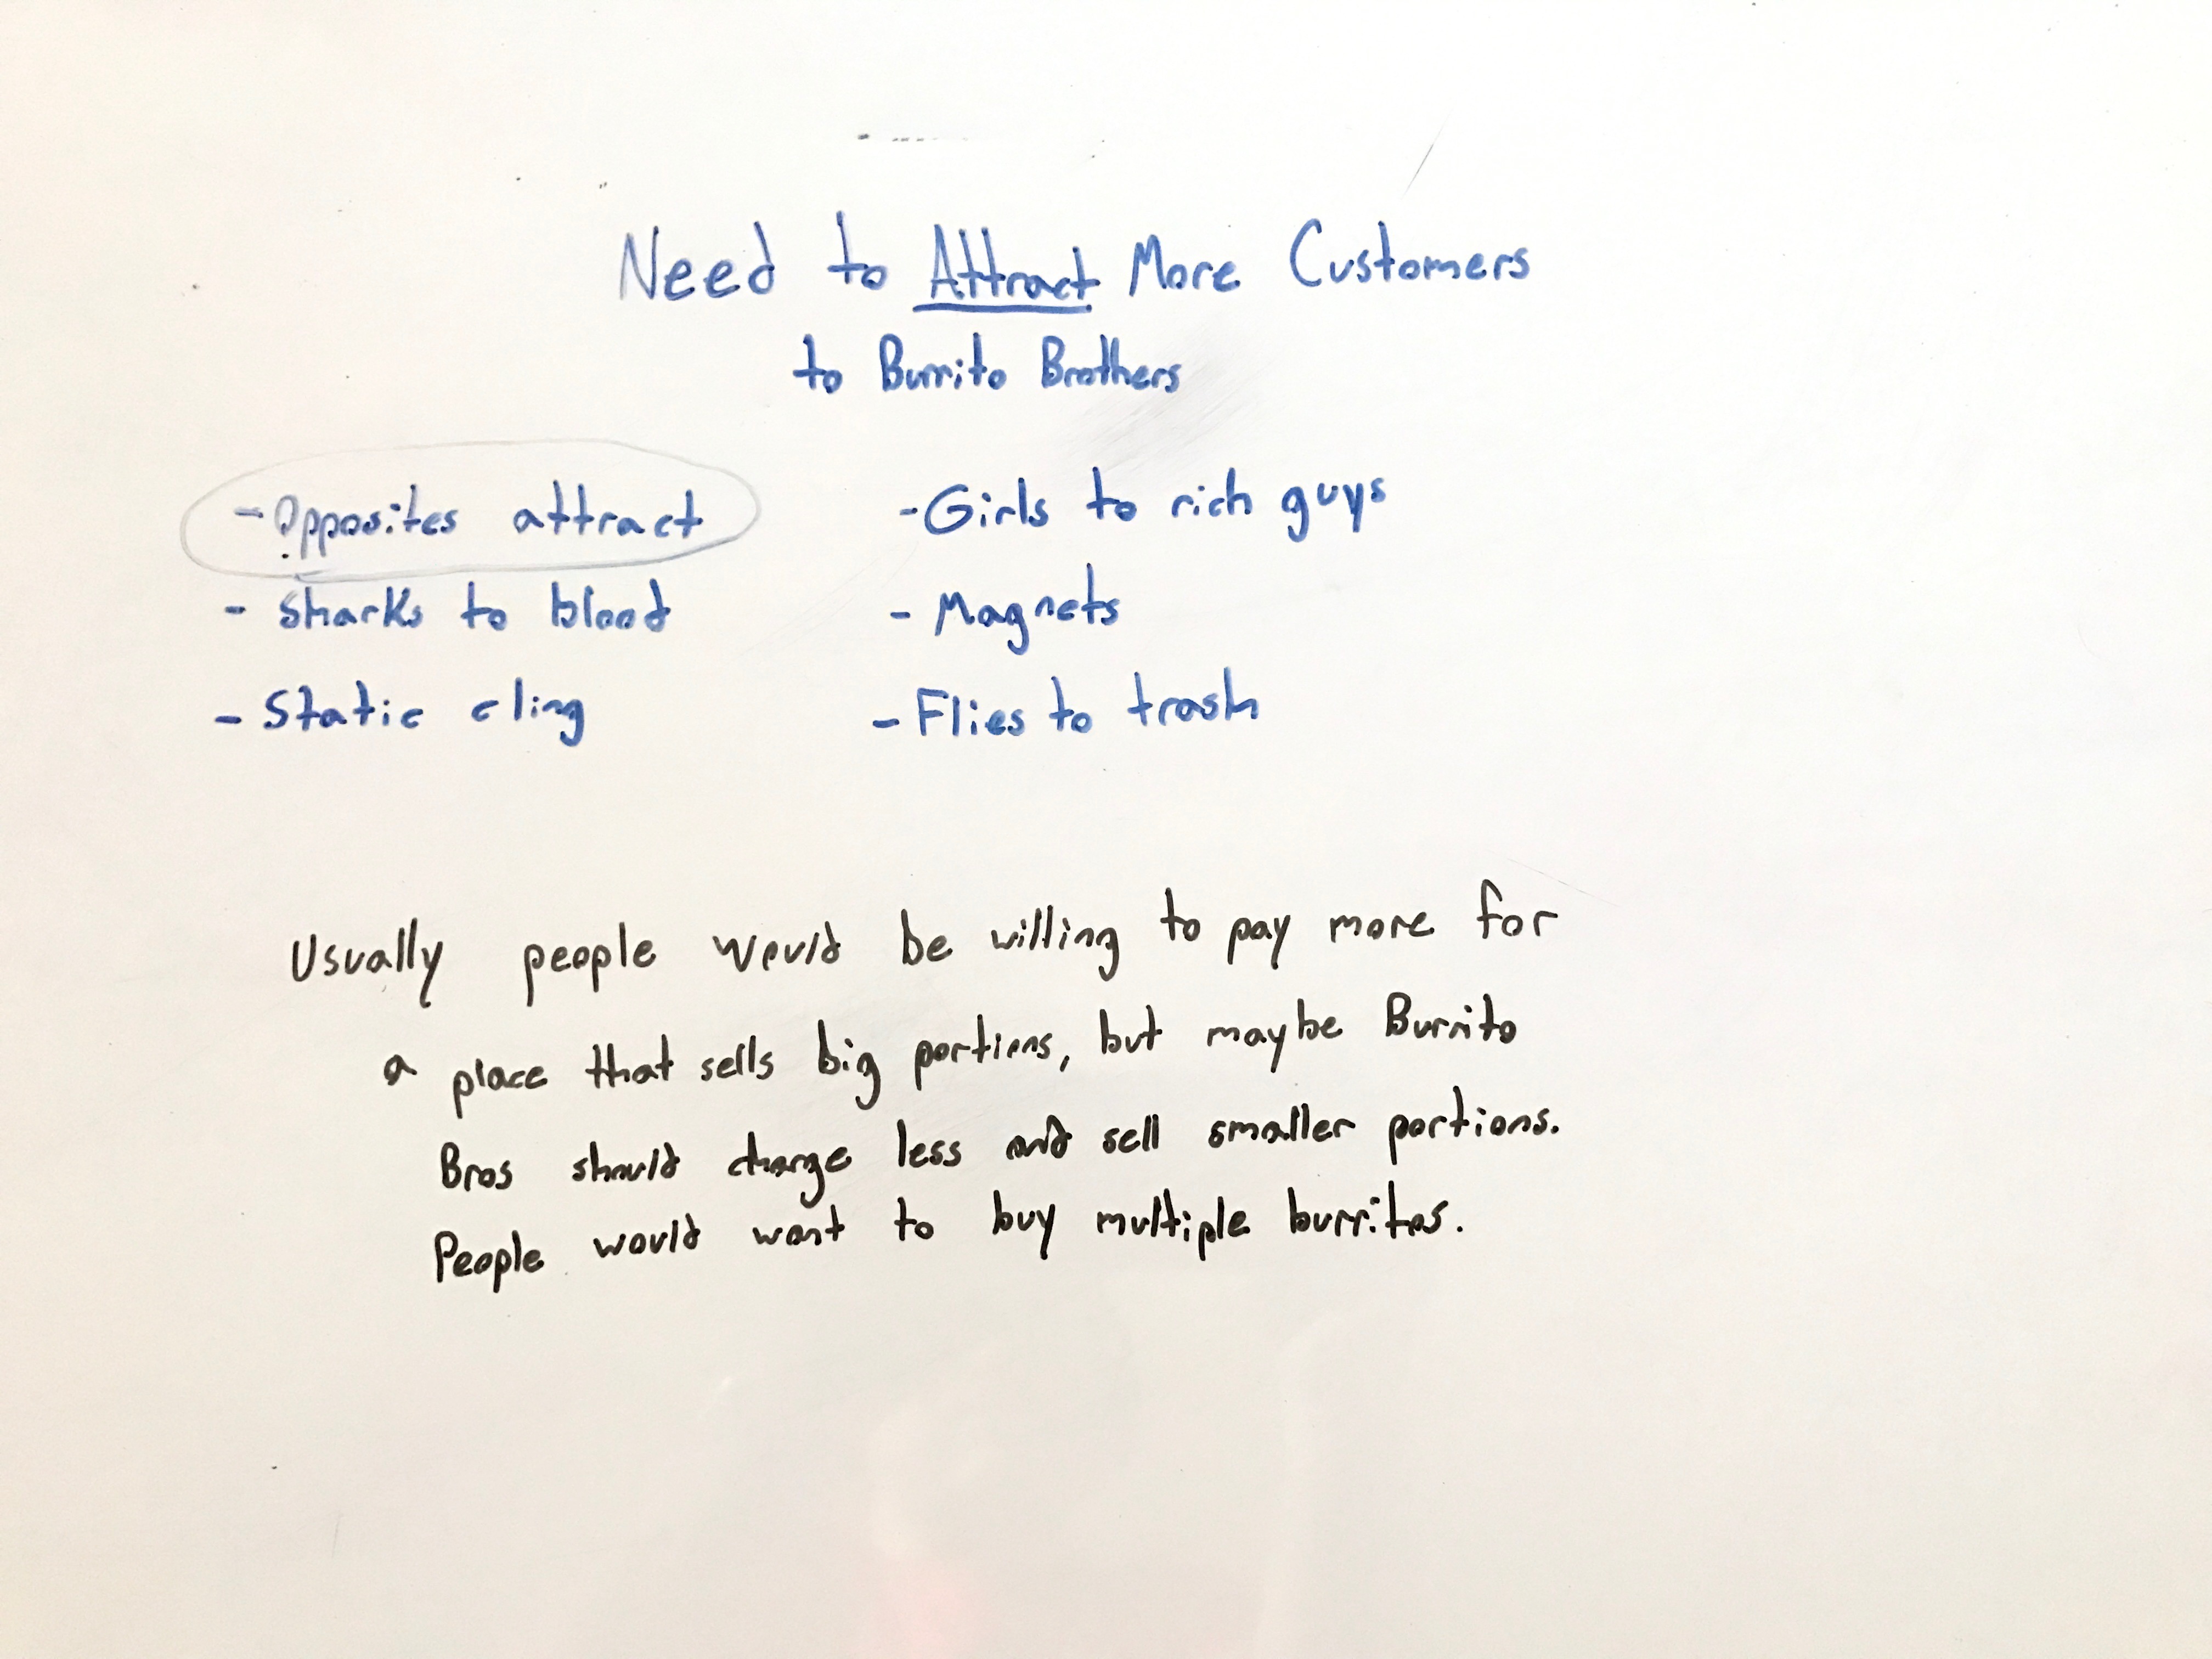 Need to Attract More Customers
to Burrito Brothers
- Opposites attract
- Sharks to blood
- Static cling
- Girls to rich guys
- Magnets
- Flies to trash
Usually people would be willing to pay more for
a place that sells big portions, but maybe Burrito
Bros should charge less and sell smaller portions.
People would want to buy multiple burritos.